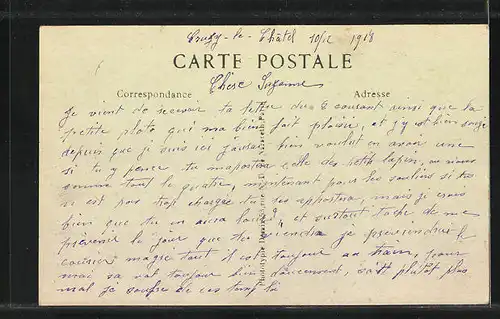 Cruzy-le-Châtel 10/12 1918
CARTE POSTALE
Correspondance Adresse
Chère Suzanne
Je vient de recevoir ta lettre du 8 courant ainsi que ta
petite photo qui ma bien fait plaisir, et j'y est bien songé
depuis que je suis ici jaurais bien voulut en avoir une
si tu y pence tu maportera celle des petits lapin, ou nous
somme tout les quatre, maintenant pour les souliers si tu
n'est pas trop chargée tu les apportera, mais je crois
bien que tu en aura, et surtout tache de me
prévenir le jour que tu viendra je previendrai le
courrier magré tout il est toujour au train, pour
moi sa vat toujour bien doucement, plutôt plus
mal je souffre de ces temps là